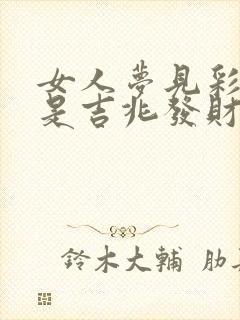 女人夢見彩
是吉兆發財
鈴木大輔 肋